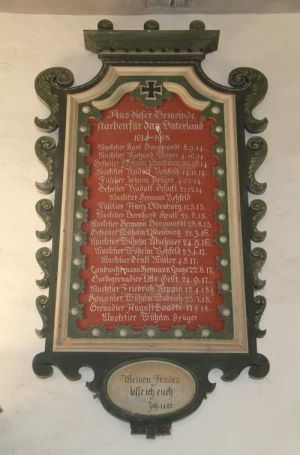 Aus dieser Gemeinde
starben für das Vaterland
1914-1918
Musketier Karl Borgwardt 8.9.14.
Musketier Richard Meyer 4.10.14.
Gefreiter Hermann 10.14
Musketier Rudolf Rehfeld 14.11.14.
Füsilier Johann Krüger 4.12.14.
Gefreiter Rudolf 21.12.14.
Musketier Hermann Rehfeld
Füsilier Franz Oldenburg 12.3.15.
Musketier Bernhard Krull 21.5.15.
Musketier Hermann Borgwardt 28.8.15.
Gefreiter Wilhelm Oldenburg 21.3.16.
Musketier Wilhelm 24.9.16.
Musketier Wilhelm Rehfeld 23.1.17.
Musketier Ernst Müller 4.8.17.
Hermann 22.8.17.
Gardegrenadier Otto Geist 24.9.17.
Musketier Friedrich Reppin 12.4.18.
Kanonier Wilhelm 23.7.18.
Grenadier August 17.8.18.
Musketier Wilhelm Krüger
Meinen Frieden
lasse ich euch
Joh. 14.27.